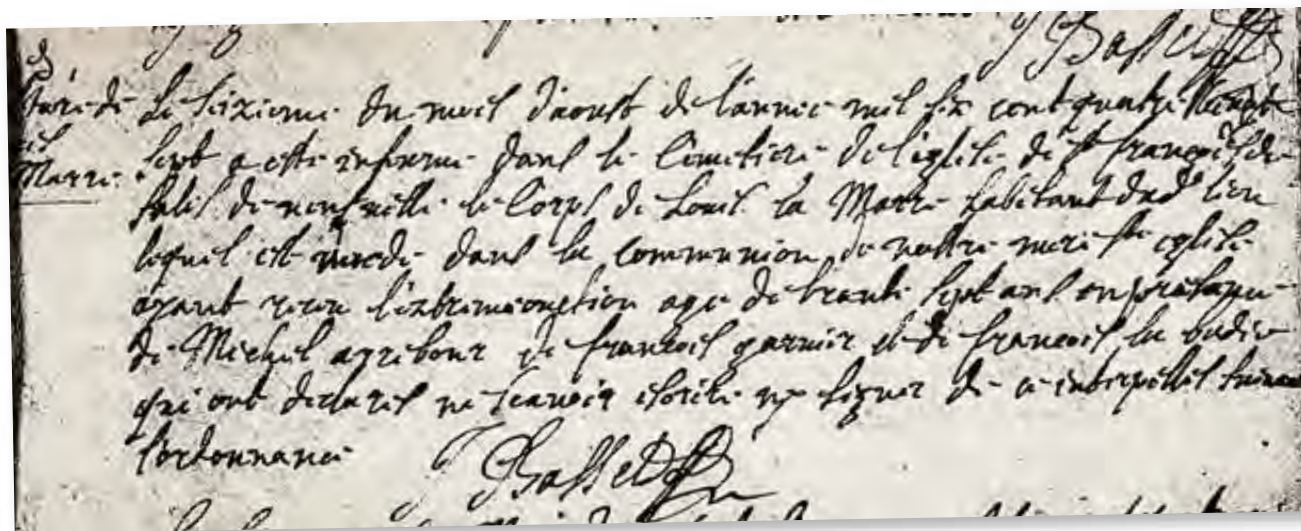 J Basset
ture de
Marre
Le seizieme du mois d'aoust de l'annee mil six cent quatre vingt
sept a esté inhumé dans le Cimetiere de l'eglise de st françois de
sales de neufville le Corps de Louis la Marre habitant dud lieu
lequel est decedé dans la communion de nostre mere ste eglise
ayant receu l'extremeonction agé de trante sept ans en presance
de Michel de françois garnier et de françois la
qui ont declarés ne sçavoir escrire ny signer de ce interpellés suivant
l'ordonnance
J Basset